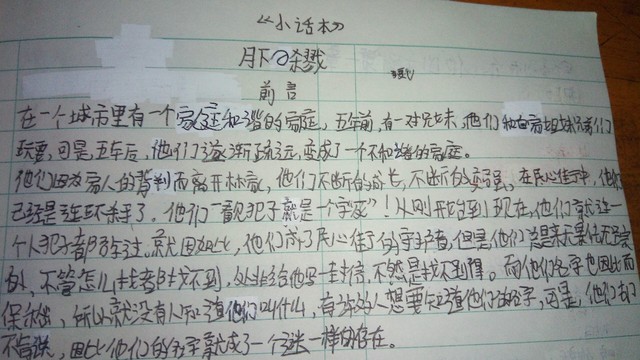 《小话本》
月下の杀戮
前言
在一个城市里有一个家庭和谐的家庭，五年前，有一对兄妹，他们和自家姐妹兄弟们
玩耍，可是，五年后，他们逐渐疏远，变成了一个不和谐的家庭。
他们因为家人的背判而离开林家，他们不断的成长，不断的变强。在民心住中，他们
已经是连环杀手了，他们"杀犯子就是一个字死"！从刚开始到现在，他们就连一
个人犯子都放过，就因如此，他们成了民心住的守护者，但是他们总是来无影去无踪
的，不管怎么找都找不到，处非给他写一封信，不然是找不到得。而他们名字也因此而
保密，所以就没有人知道他们叫什么，有许多人想要知道他们的名字，可是，他们都
不肯说，因此他们的名字就成了一个谜一样的存在。